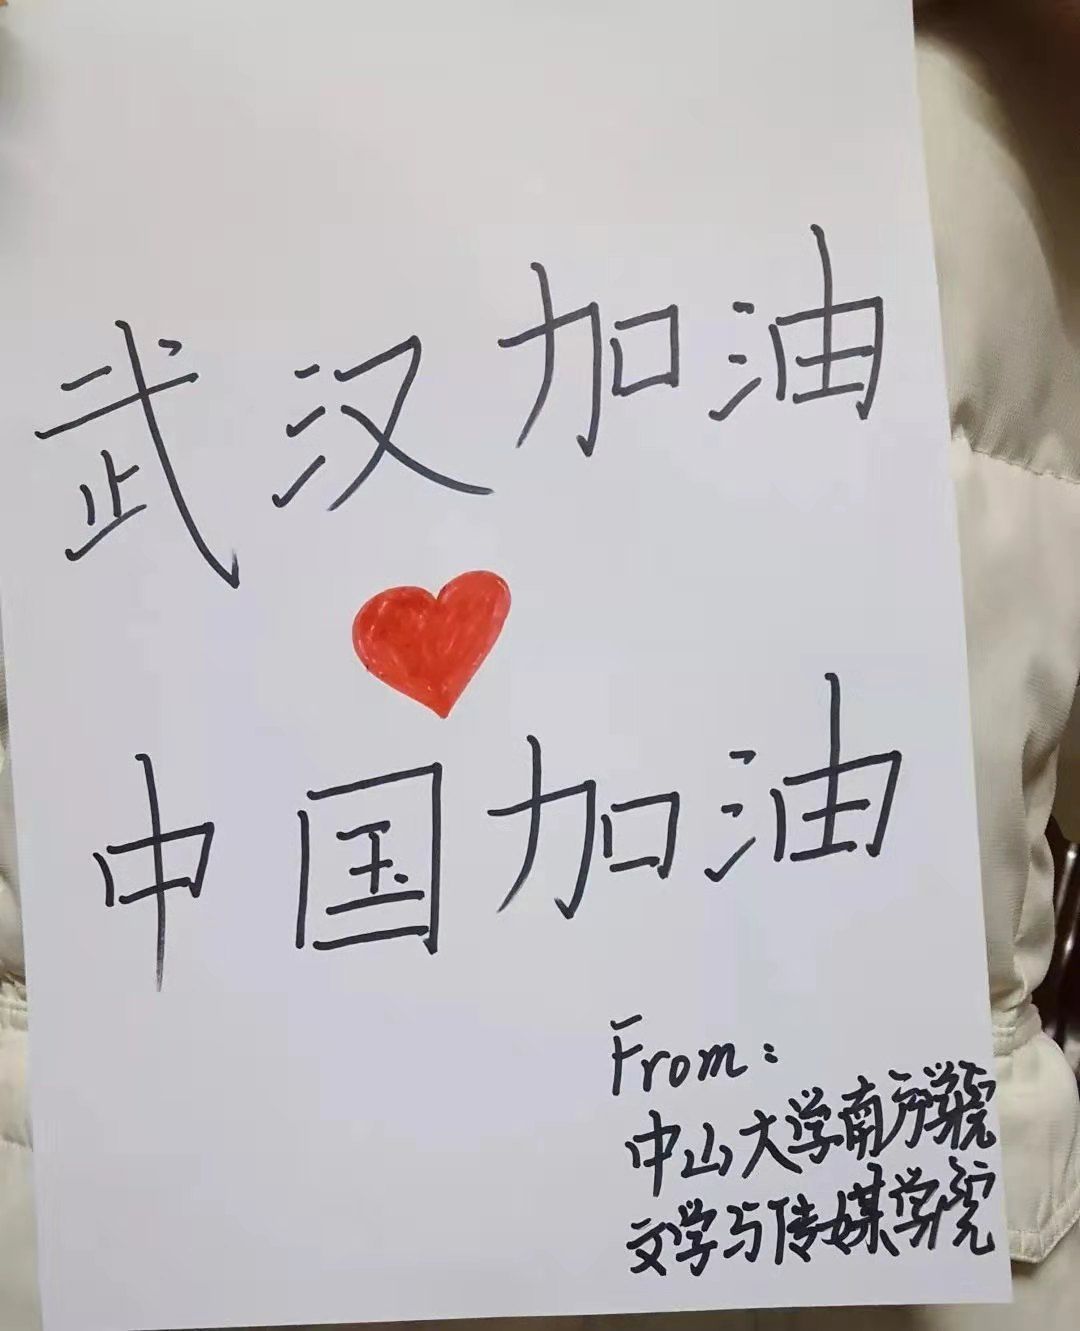 武汉加油
中国加油
From：
中山大学南方学院
文学与传媒学院